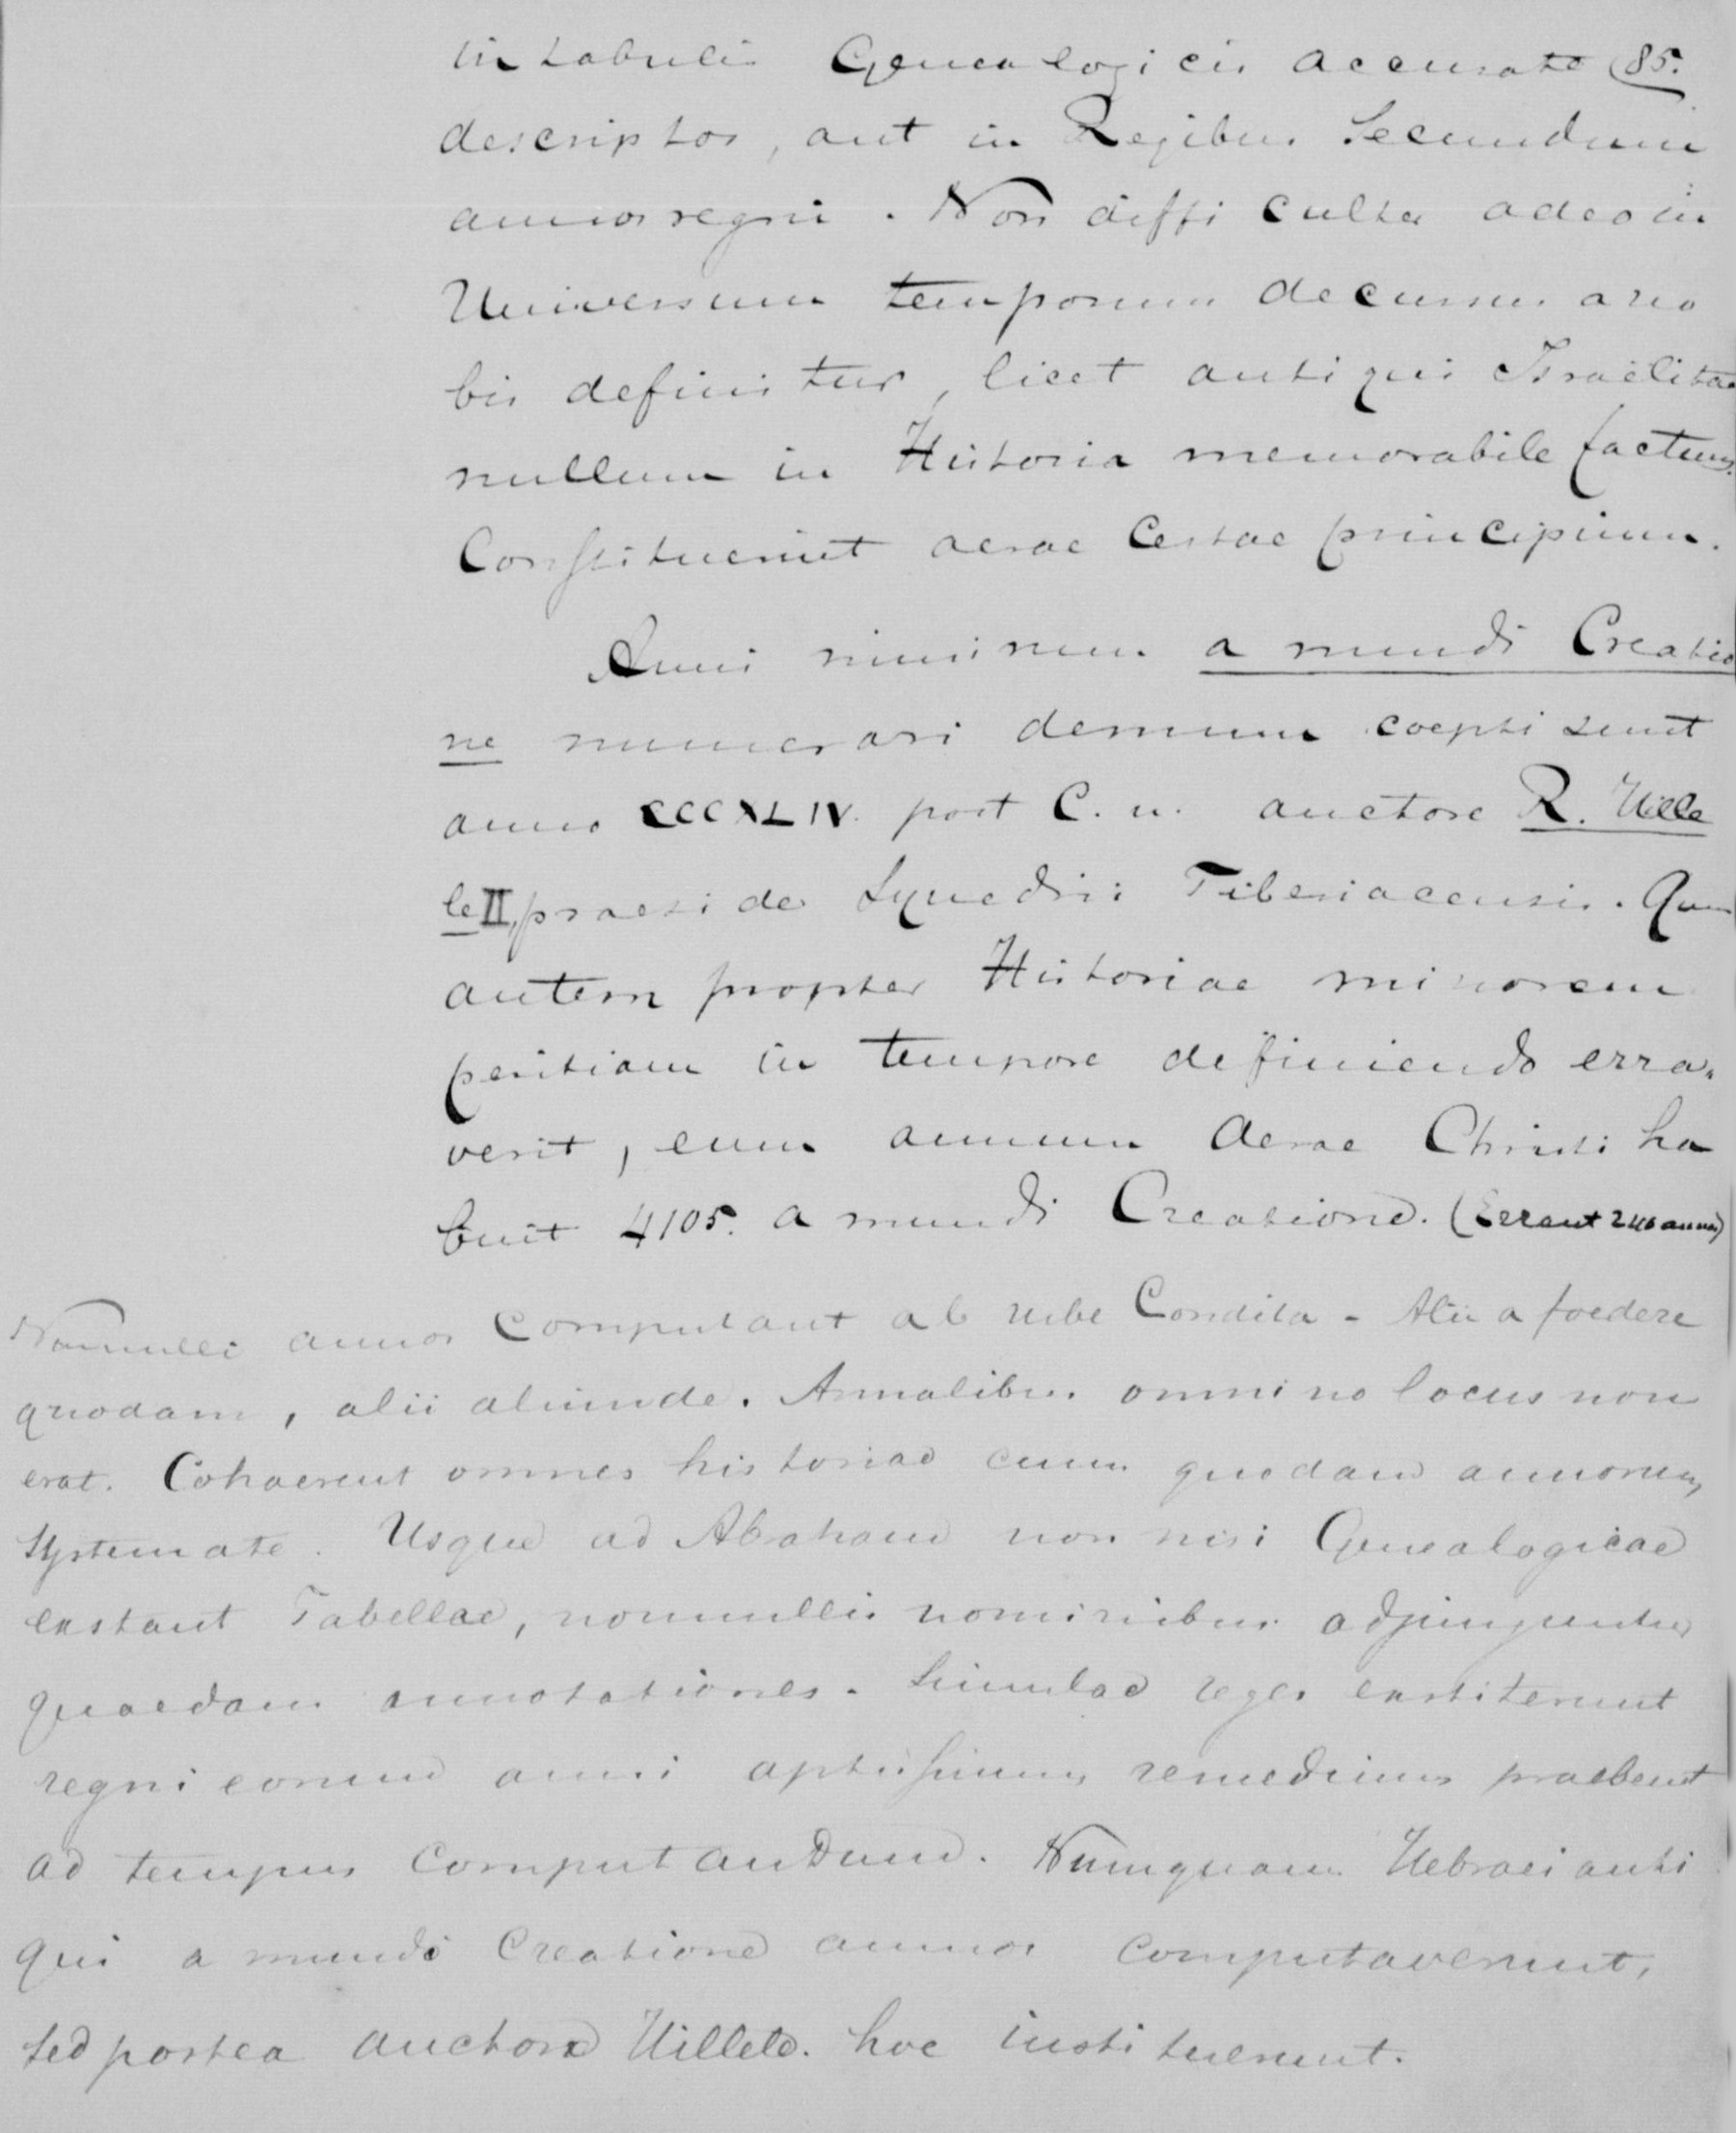 in tabulis Genealogicis accurate 85.
descriptos, aut in Regibus secundum
annos regni. Non difficulter adeo in
Universum temporum decursus a no
bis definitur, licet antiqui Israëlitae
nullum in Historia memorabile factum
Constituerint aerae certae principium.
Anni nimirum a mundi Creatio
ne numerari demum coepti sunt
anno CCCXLIV. post C. n. auctore R. Hille
le II, praeside Synedrii Tiberiacensis. Qum
autem propter Historiae minorem
peritiam in tempore definiendo erra-
verit, eum annum aerae Christi ha
buit 4105. a mundi Creatione. (Errant 240 annos)
Nonnulli annos computant ab urbe Condita - Alii a foedere
quodam, alii aliunde. Annalibus omnino locus non
erat. Cohaerent omnes historiae cum quodam annorum
systemate. Usque ad Abraham non nisi Genealogicae
exstant Tabellae, nonnullis nominibus adjunguntur
quaedam annotationes. Simulac reges exstiterunt
regni eorum anni aptissimum remedium praebent
ad tempus computandum. Numquam Hebraei anti
qui a mundi Creatione annos computaverunt,
sed postea auctore Hillele. hoc instituerunt.